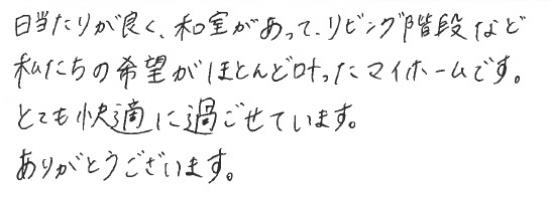 日当たりが良く、和室があって、リビング階段など
私たちの希望がほとんど叶ったマイホームです。
とても快適に過ごせています。
ありがとうございます。